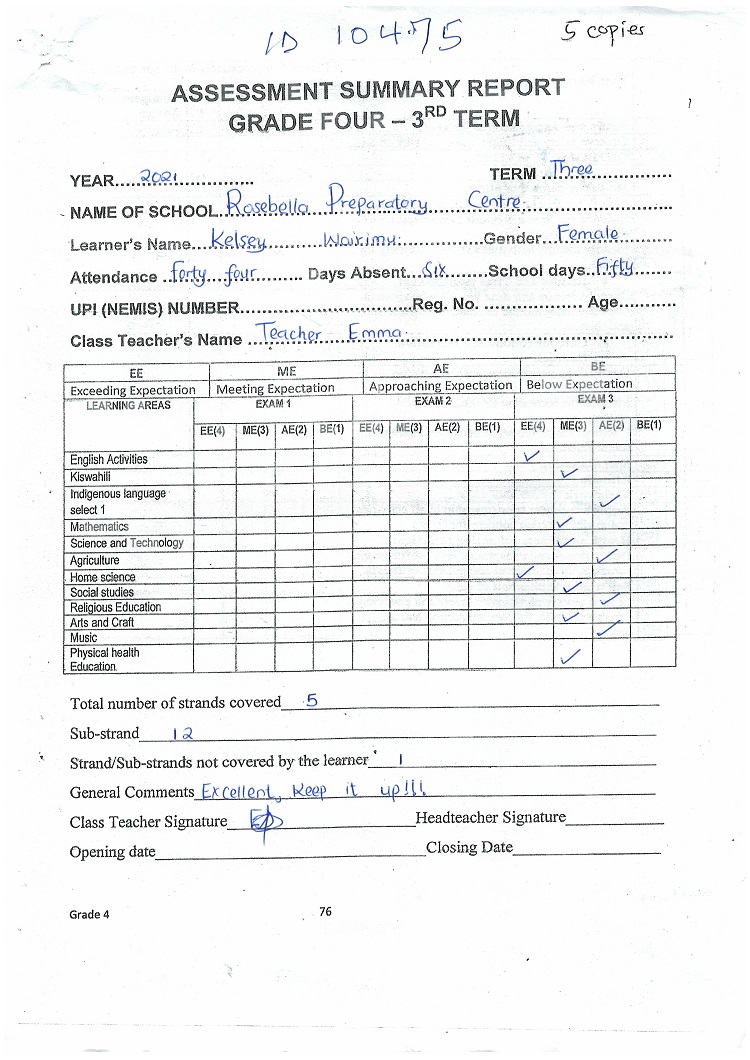 ID 10475
5 copies
ASSESSMENT SUMMARY REPORT
GRADE FOUR – 3RD TERM
YEAR....2021............... TERM ..Three...............
NAME OF SCHOOL..Rosebella...Preparatory......Centre..........
Learner's Name...Kelsey........Wairimu...............Gender...Female........
Attendance ..forty..four......... Days Absent...Six.......School days..Fifty......
UPI (NEMIS) NUMBER...............................Reg. No. ................. Age..........
Class Teacher's Name ..Teacher....Emma..............................
EE ME AE BE
Exceeding Expectation Meeting Expectation Approaching Expectation Below Expectation
LEARNING AREAS EXAM 1 EXAM 2 EXAM 3
EE(4) ME(3) AE(2) BE(1) EE(4) ME(3) AE(2) BE(1) EE(4) ME(3) AE(2) BE(1)
English Activities ✓
Kiswahili ✓
Indigenous language
select 1 ✓
Mathematics ✓
Science and Technology ✓
Agriculture ✓
Home science ✓
Social studies ✓
Religious Education ✓
Arts and Craft ✓
Music ✓
Physical health
Education ✓
Total number of strands covered 5
Sub-strand 12
Strand/Sub-strands not covered by the learner 1
General Comments Excellent, Keep it up!!!
Class Teacher Signature Headteacher Signature
Opening date Closing Date
Grade 4 76